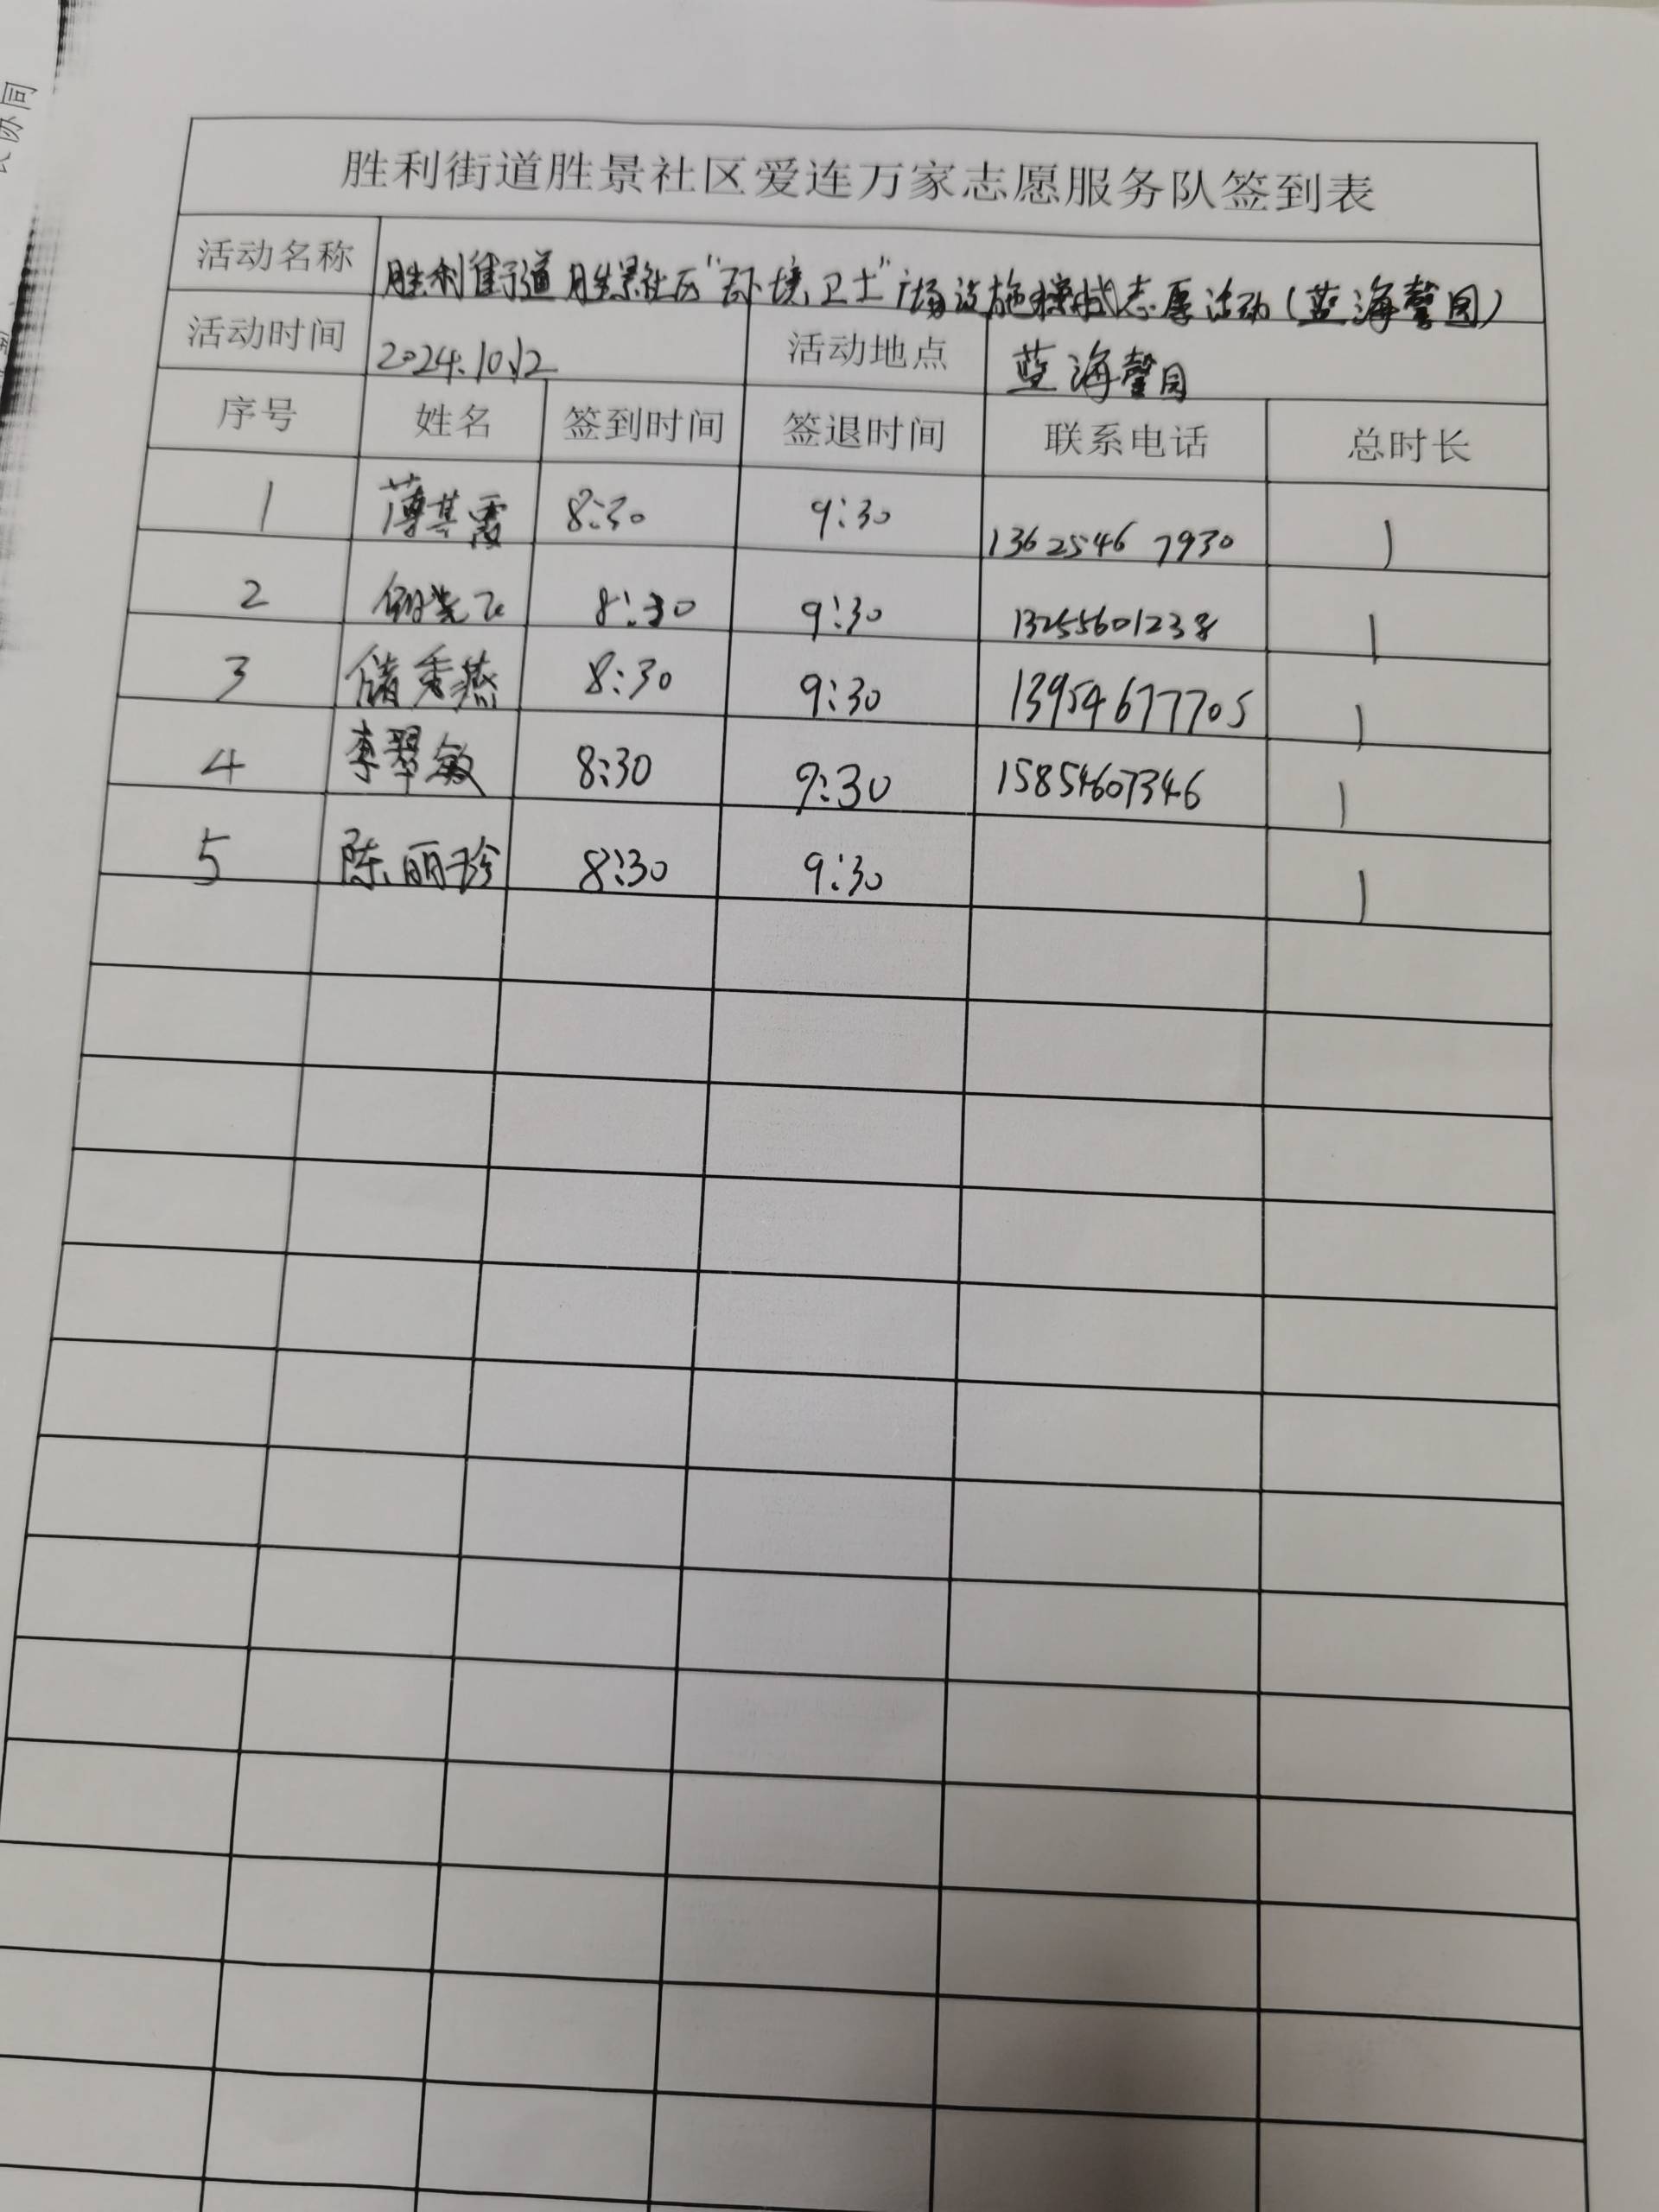 胜利街道胜景社区爱连万家志愿服务队签到表
活动名称 胜利街道胜景社区"环境卫士"广场设施擦拭志愿活动(蓝海馨园)
活动时间 2024.10.12 活动地点 蓝海馨园
序号 姓名 签到时间 签退时间 联系电话 总时长
1 薄其霞 8:30 9:30 13625467930 1
2 8:30 9:30 13255601238 1
3 储秀燕 8:30 9:30 13954677705 1
4 李翠敏 8:30 9:30 15854607346 1
5 陈丽珍 8:30 9:30 1
协同